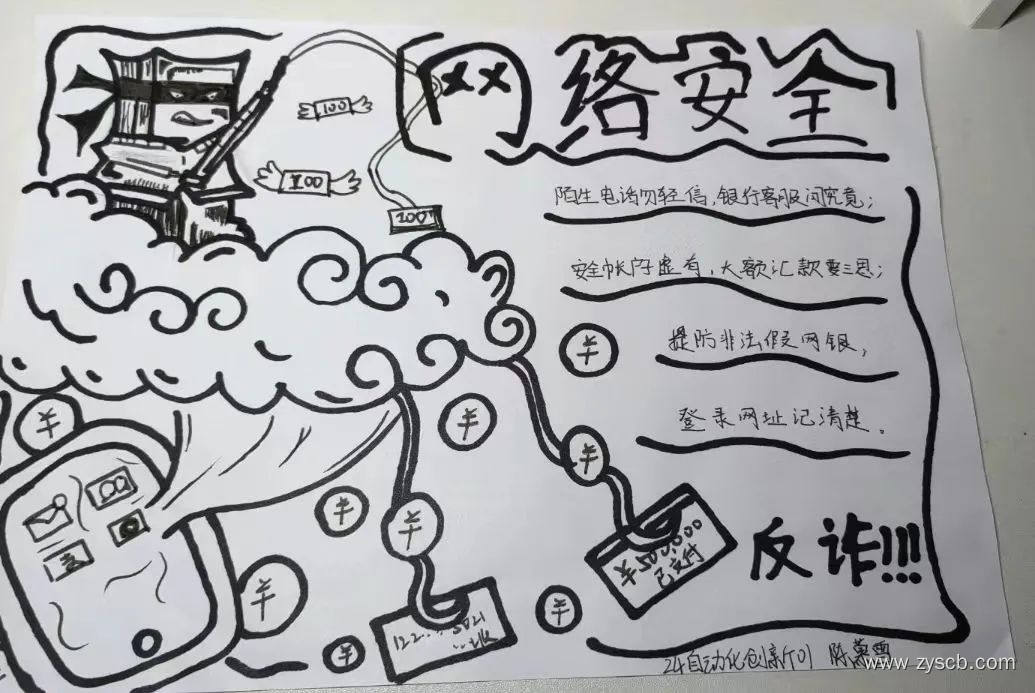 网络安全
100
100
100
陌生电话勿轻信,银行客服问究竟;
安全帐户子虚有,大额汇款要三思;
提防非法假网银,
登录网址记清楚。
¥
¥
¥
¥
¥
100
支
¥
¥
¥
¥
¥500000
已支付
反诈!!!
122...5021
24自动化创新01 陈
www.zyscb.com